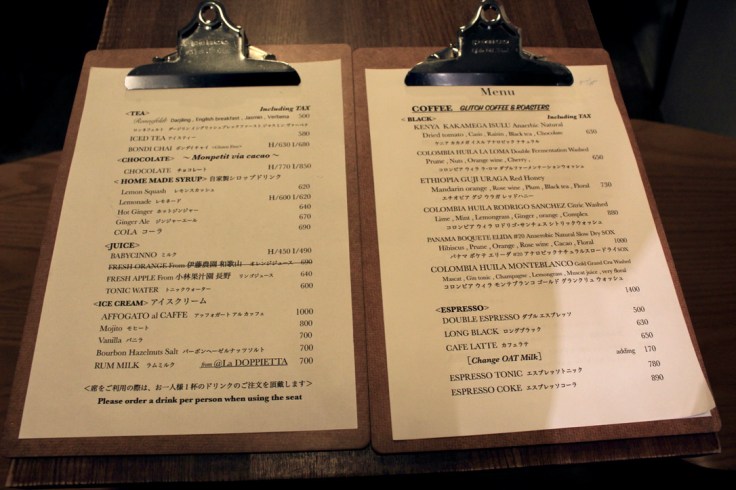 Including TAX
<TEA>
Ronnefeldt Darjling , English breakfast , Jasmin , Verbena 500
ロンネフェルト ダージリン イングリッシュブレックファースト ジャスミン ヴァーベナ
ICED TEA アイスティー 580
BONDI CHAI ボンダイチャイ H/630 I/680
<CHOCOLATE> ～ Monpetit via cacao ～
CHOCOLATE チョコレート H/770 I/850
< HOME MADE SYRUP> 自家製シロップドリンク
Lemon Squash レモンスカッシュ 620
Lemonade レモネード H/600 I/620
Hot Ginger ホットジンジャー 640
Ginger Ale ジンジャーエール 670
COLA コーラ 690
<JUICE>
BABYCINNO ミルク H/450 I/490
FRESH ORANGE From 伊藤農園 和歌山 オレンジジュース 690
FRESH APPLE From 小林果汁園 長野 リンゴジュース 640
TONIC WATER トニックウォーター 600
<ICE CREAM> アイスクリーム
AFFOGATO al CAFFE アッフォガート アル カッフェ 1000
Mojito モヒート 800
Vanilla バニラ 700
Bourbon Hazelnuts Salt バーボンヘーゼルナッツソルト 700
RUM MILK ラムミルク from @La DOPPIETTA 700
<席をご利用の際は、お一人様1杯のドリンクのご注文を頂戴します>
Please order a drink per person when using the seat
Menu
COFFEE GLITCH COFFEE & ROASTERS
<BLACK> Including TAX
KENYA KAKAMEGA ISULU Anaerobic Natural
Dried tomato , Casis , Raisin , Black tea , Chocolate 650
ケニア カカメガ イスル アナエロビック ナチュラル
COLOMBIA HUILA LA LOMA Double Fermentation Washed
Prune , Nuts , Orange wine , Cherry , 650
コロンビア ウィラ ラ・ロマ ダブルファーメンテーションウォッシュ
ETHIOPIA GUJI URAGA Red Honey
Mandarin orange , Rose wine , Plum , Black tea , Floral 750
エチオピア グジ ウラガ レッドハニー
COLOMBIA HUILA RODRIGO SANCHEZ Citric Washed
Lime , Mint , Lemongrass , Ginger , orange , Complex 880
コロンビア ウィラ ロドリゴ・サンチェス シトリックウォッシュ
PANAMA BOQUETE ELIDA #29 Anaerobic Natural Slow Dry SOX
Hibiscus , Prune , Orange , Rose wine , Cacao , Floral 1000
パナマ ボケテ エリーダ #29 アナエロビックナチュラルスロードライSOX
COLOMBIA HUILA MONTEBLANCO Gold Grand Cru Washed
Muscat , Gin tonic , Champagne , Lemongrass , Muscat juice , very floral
コロンビア ウィラ モンテブランコ ゴールド グランクリュ ウォッシュ
1400
<ESPRESSO>
DOUBLE ESPRESSO ダブル エスプレッソ 500
LONG BLACK ロングブラック 630
CAFE LATTE カフェラテ 650
[Change OAT Milk] adding 170
ESPRESSO TONIC エスプレッソトニック 780
ESPRESSO COKE エスプレッソコーラ 890